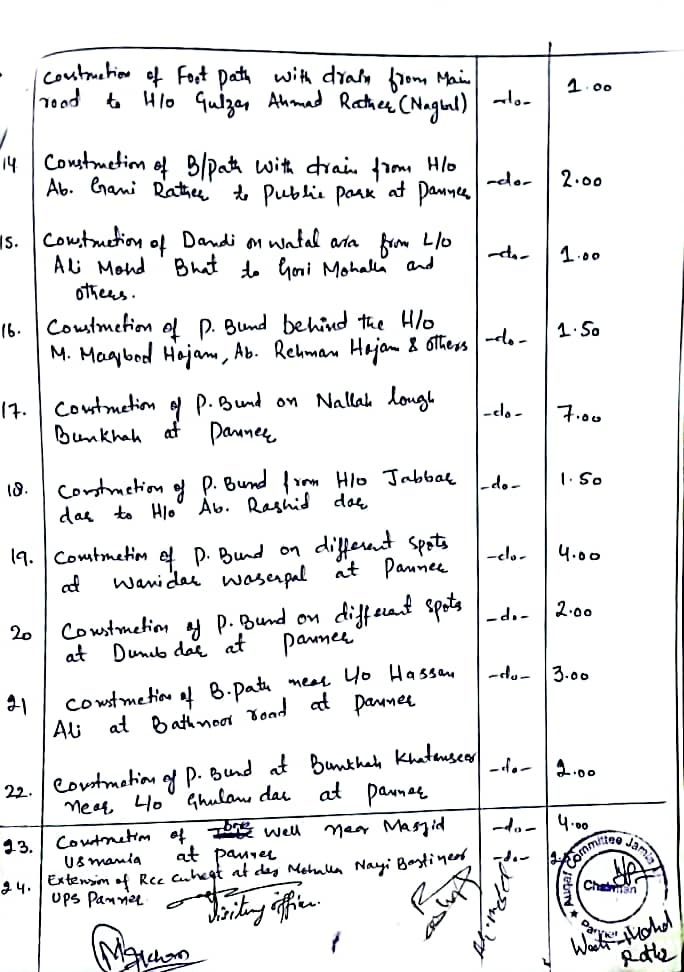 Construction of Foot Path with drain from Main
road to H/o Gulzar Ahmad Rather (Nagbal) -do- 1.00
14 Construction of B/path with drain from H/o
Ab. Gani Rather to Public park at Panner -do- 2.00
15. Construction of Dandi on watal ara from L/o
Ali Mohd Bhat to Gori Mohalla and -do- 1.00
others.
16. Construction of P. Bund behind the H/o
M. Maqbool Hajam, Ab. Rehman Hajam & others -do- 1.50
17. Construction of P. Bund on Nallah lough
Bunkhah at Panner -do- 7.00
18. Construction of P. Bund from H/o Jabbar
dar to H/o Ab. Rashid dar -do- 1.50
19. Construction of P. Bund on different spots
at Wanidar Waserpal at Panner -do- 4.00
20 Construction of P. Bund on different spots
at Dumb dar at Panner -do- 2.00
21 Construction of B.path near L/o Hassan
Ali at Bathnoor road at Panner -do- 3.00
22. Construction of P. Bund at Bunkhah
near L/o Ghulam dar at Panner -do- 2.00
23. Construction of Well near Masjid
Usmania at Panner -do- 4.00
24. Extension of Rcc at dar Mohalla Nayi Basti near
UPS Panner -do-
Visiting officer.
Auqaf Committee Jamia
Chairman
Mohd